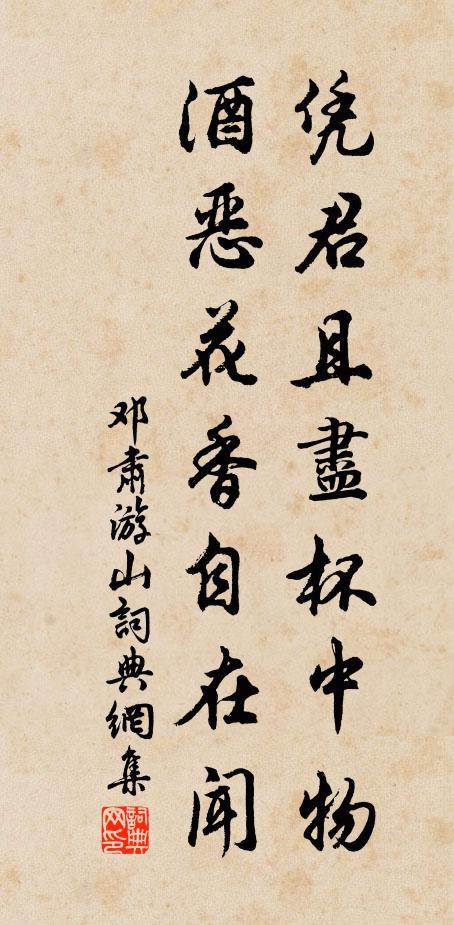 凭君且盡杯中物
酒恶花香自在闻
邓肃游山詞典網集
詞典网印